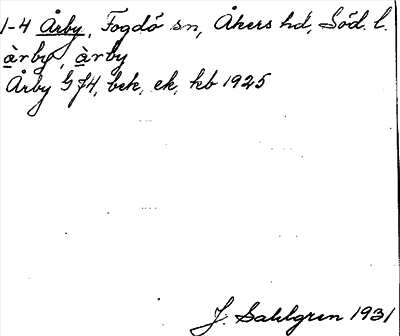 1-4 Årby, Fogdö sn, Åkers hd, Söd. l.
àrby, àrby
Årby GJ4, bek, ek, kb 1925
J. Sahlgren 1931